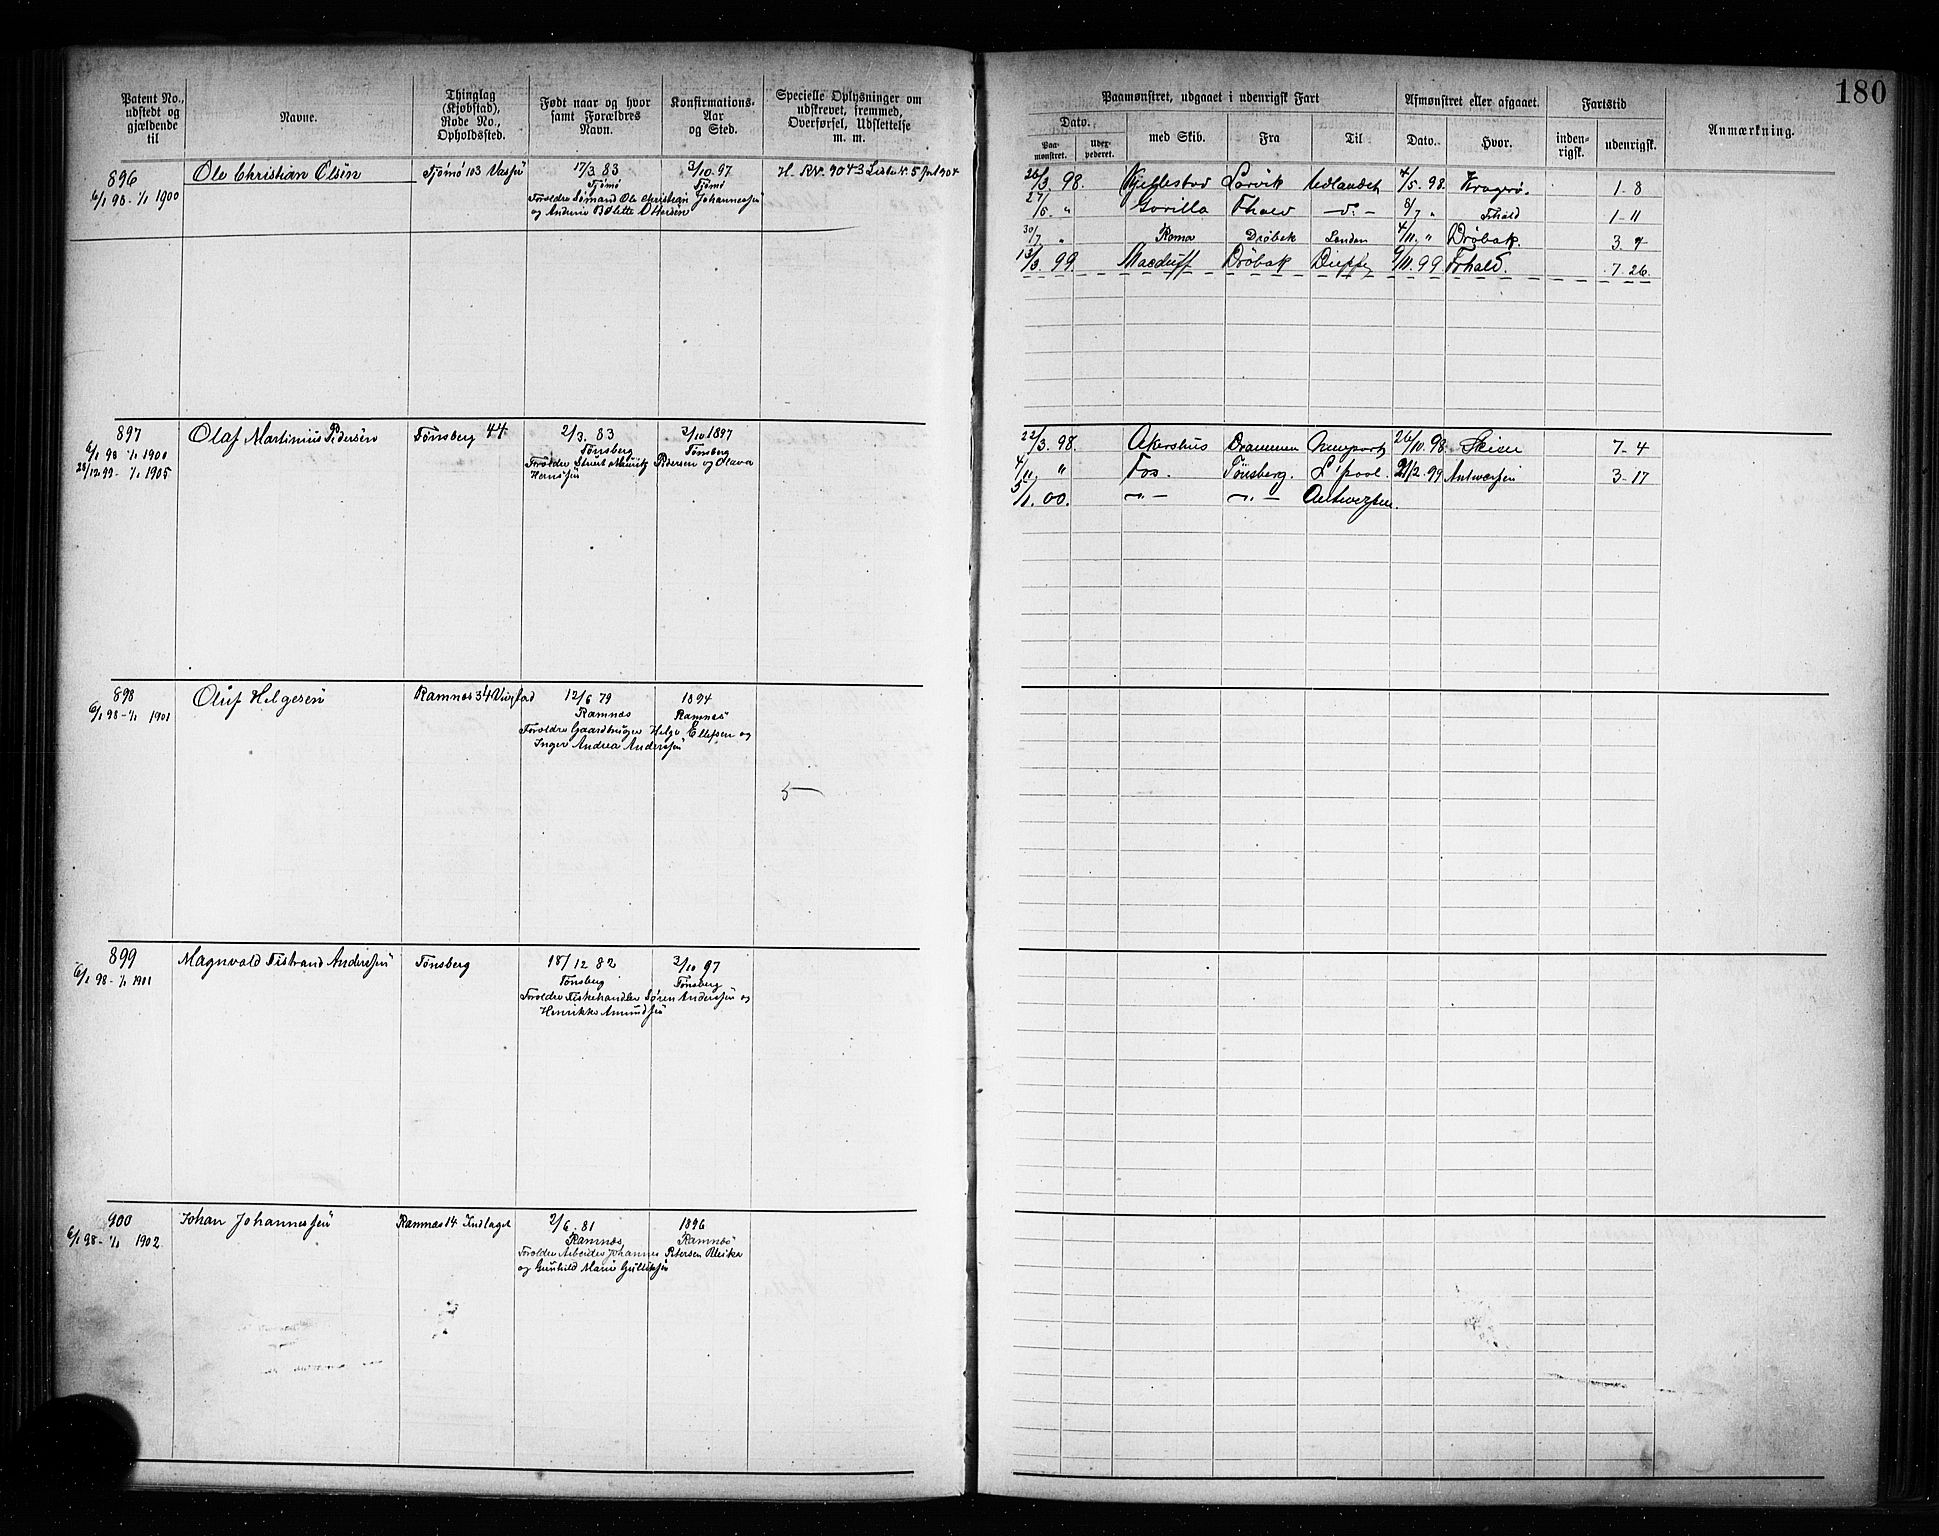 180
Patent No., udstedt og gjældende til
Navne.
Thinglag (Kjøbstad), Rode No., Opholdssted.
Født naar og hvor samt Forældres Navn.
Konfirmations- Aar og Sted.
Specielle Oplysninger om udskrevet, fremmed, Overførsel, Udslettelse m. m.
Paamønstret, udgaaet i udenrigsk Fart
Afmønstret eller afgaaet.
Fartstid
Anmærkning.
Dato.
Paamønstret.
med Skib.
Fra
Til
Dato.
Hvor.
inden- rigsk.
udenrigsk.
896
6/1 98 - 1/1 1900
Ole Christian Olsen
Tjømø 103
17/3 83
Tjømø
Forældre Sømand Ole Christian Johannessen
og Andrine Bolette Ottersen
3/10 97
Tjømø
25/3 98. Kjellestad Larvik Udlandet 4/5 98. Kragerø. 1 - 8
27/5 " Gorilla Fhald 8/7 " Frhald 1 - 11
30/7 " Roma Drøbak London 4/11 " Drøbak.
13/3 99 Macduff Drøbak Dieppe 9/11 99 Frhald. 7 26
897
6/1 98 - 1/1 1900
28/12 99 - 1/1 1905
Olaf Martinius Pedersen
Tønsberg 44
2/3 83
Tønsberg
3/10 1897
Tønsberg
Pedersen og Olava
22/3 98. Akershus Drammen Newport 26/10 98. Skien 7 - 4
4/11 " Fos. Tønsberg. L'pool. 21/12 99 Antwerpen 3 - 17
5/1 00. - " - - " - Antwerpen.
898
6/1 98 - 1/1 1901
Oluf Helgesen
Ramnæs 34
12/6 79
Ramnæs
Forældre Gaardbruger Helge Ellefsen og
Inger Andrea Anderssen
1894
Ramnæs
5
899
6/1 98 - 1/1 1901
Magnvald Testrand Anderssen
Tønsberg
18/12 82
Tønsberg
Forældre Fiskehandler Søren Anderssen og
Henrikke Amundsen
3/10 97
Tønsberg
900
6/1 98 - 1/1 1902
Johan Johannessen
Ramnæs 14 Indlaget
2/6 81
Ramnæs
Forældre Arbeider Johannes Petersen
og Gunhild Marie Gulliksen
1896
Ramnæs